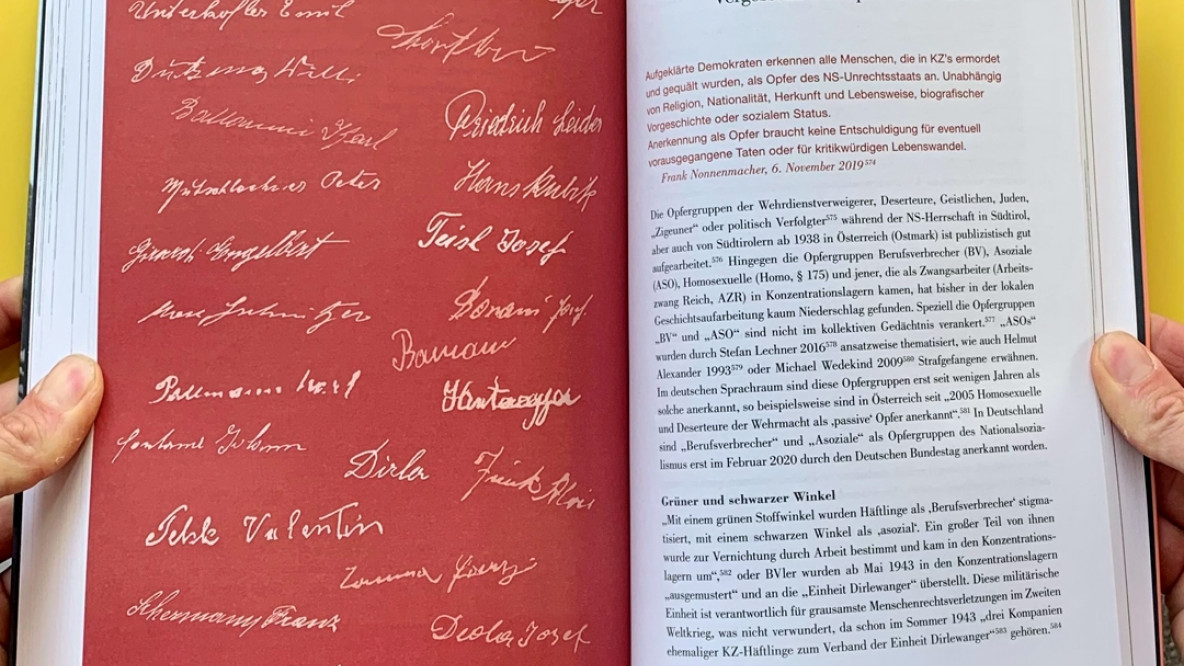 Unterkofler Emil
Willi
Karl
Friedrich Leider
Peter
Hans Kubik
Engelbert
Teisl Josef
Bonani Josef
Dirler
Funk Alois
Valentin
Franz
Schermany Franz
Deola Josef
Aufgeklärte Demokraten erkennen alle Menschen, die in KZ's ermordet
und gequält wurden, als Opfer des NS-Unrechtsstaats an. Unabhängig
von Religion, Nationalität, Herkunft und Lebensweise, biografischer
Vorgeschichte oder sozialem Status.
Anerkennung als Opfer braucht keine Entschuldigung für eventuell
vorausgegangene Taten oder für kritikwürdigen Lebenswandel.
Frank Nonnenmacher, 6. November 2019⁵⁷⁴
Die Opfergruppen der Wehrdienstverweigerer, Deserteure, Geistlichen, Juden,
„Zigeuner“ oder politisch Verfolgter⁵⁷⁵ während der NS-Herrschaft in Südtirol,
aber auch von Südtirolern ab 1938 in Österreich (Ostmark) ist publizistisch gut
aufgearbeitet.⁵⁷⁶ Hingegen die Opfergruppen Berufsverbrecher (BV), Asoziale
(ASO), Homosexuelle (Homo, § 175) und jener, die als Zwangsarbeiter (Arbeits-
zwang Reich, AZR) in Konzentrationslagern kamen, hat bisher in der lokalen
Geschichtsaufarbeitung kaum Niederschlag gefunden. Speziell die Opfergruppen
„BV“ und „ASO“ sind nicht im kollektiven Gedächtnis verankert.⁵⁷⁷ „ASOs“
wurden durch Stefan Lechner 2016⁵⁷⁸ ansatzweise thematisiert, wie auch Helmut
Alexander 1993⁵⁷⁹ oder Michael Wedekind 2009⁵⁸⁰ Strafgefangene erwähnen.
Im deutschen Sprachraum sind diese Opfergruppen erst seit wenigen Jahren als
solche anerkannt, so beispielsweise sind in Österreich seit „2005 Homosexuelle
und Deserteure der Wehrmacht als ‚passive‘ Opfer anerkannt“.⁵⁸¹ In Deutschland
sind „Berufsverbrecher“ und „Asoziale“ als Opfergruppen des Nationalsozia-
lismus erst im Februar 2020 durch den Deutschen Bundestag anerkannt worden.
Grüner und schwarzer Winkel
„Mit einem grünen Stoffwinkel wurden Häftlinge als ‚Berufsverbrecher‘ stigma-
tisiert, mit einem schwarzen Winkel als ‚asozial‘. Ein großer Teil von ihnen
wurde zur Vernichtung durch Arbeit bestimmt und kam in den Konzentrations-
lagern um“,⁵⁸² oder BVler wurden ab Mai 1943 in den Konzentrationslagern
„ausgemustert“ und an die „Einheit Dirlewanger“ überstellt. Diese militärische
Einheit ist verantwortlich für grausamste Menschenrechtsverletzungen im Zweiten
Weltkrieg, was nicht verwundert, da schon im Sommer 1943 „drei Kompanien
ehemaliger KZ-Häftlinge zum Verband der Einheit Dirlewanger“⁵⁸³ gehören.⁵⁸⁴